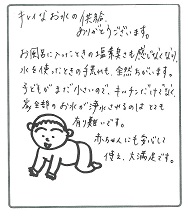 キレイなお水の供給、
ありがとうございます。
お風呂に入ったときの塩素臭さも感じなくなり、
水を使ったときの手荒れも、全然ちがいます。
子どもがまだ小さいので、キッチンだけでなく、
家全部のお水が浄水されるのはとても
有り難いです。
赤ちゃんにも安心して
使え、大満足です。